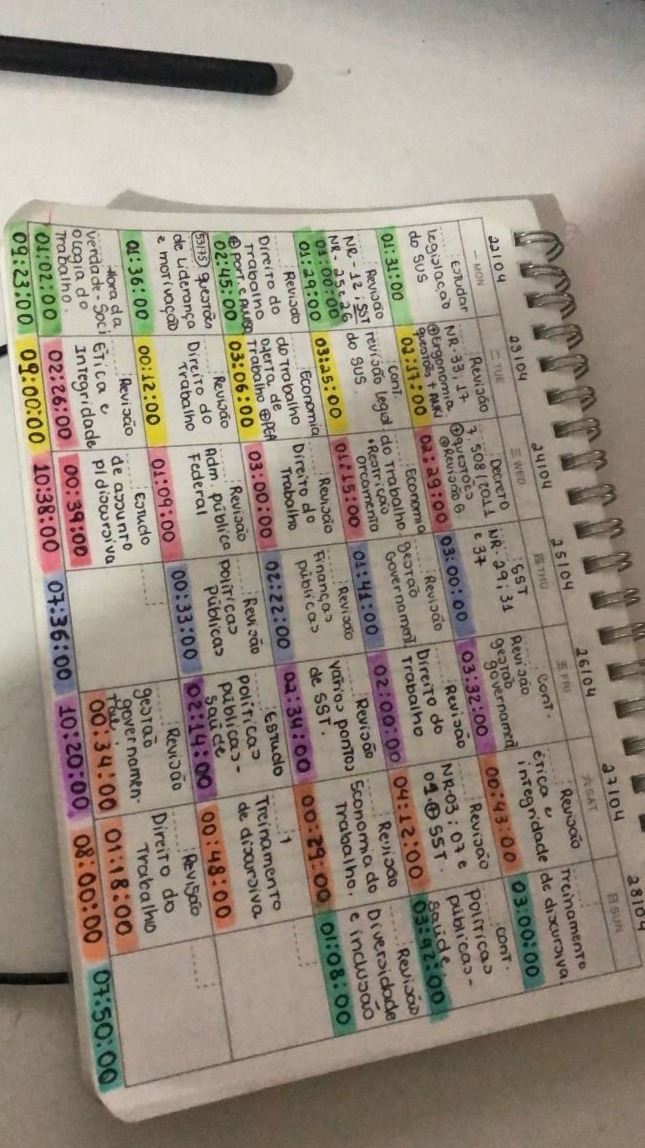 22104
一 MON
Estudar
legislação
do SUS
01:31:00
Revisão
NR-12 ; SST
NR-25 e 26
01:00:00
01:29:00
Revisão
Direito do
Trabalho
⊕ port. e
02:45:00
53/75 questões
de Liderança
e motivação
01:36:00
Hora da
verdade - Soci
ologia do
Trabalho.
01:02:00
09:23:00
23104
二 TUE
Revisão
NR-33, 17
⊕ Ergonomia
questões +
02:17:00
cont.
revisão legisl
do SUS.
03:25:00
Economia
do trabalho
oferta de
Trabalho ⊕ PEA
03:06:00
Revisão
Direito do
Trabalho
00:12:00
Revisão
Ética e
Integridade
02:26:00
09:00:00
24104
三 WED
Decreto
7.508/2011
⊕ questões
⊕ Revisão ⊕
02:29:00
Economia
do trabalho.
• Restrição
orçamentá
01:15:00
Revisão
Direito do
Trabalho
03:00:00
Revisão
Adm. pública
Federal
01:09:00
Estudo
de assunto
p/ discursiva
00:39:00
10:38:00
25104
四 THU
SST
NR-29, 31
e 37
03:00:00
Revisão
gestão
Governament
01:41:00
Revisão
Finanças
públicas
02:22:00
Revisão
políticas
Públicas
00:33:00
07:36:00
26104
五 FRI
cont.
Revisão
gestão
governament
03:32:00
Revisão
Direito do
Trabalho
02:00:00
Revisão
vários pontos
de SST.
02:34:00
Estudo
políticas
públicas -
saúde
02:14:00
10:20:00
27104
六 SAT
Revisão
ética e
integridade
00:43:00
Revisão
NR-03 ; 07 e
09. ⊕ SST.
04:12:00
Revisão
Economia do
Trabalho.
00:29:00
Treinamento
de discursiva
00:48:00
Revisão
gestão
governamen
tal.
00:34:00
Revisão
Direito do
Trabalho
01:18:00
08:00:00
28104
日 SUN
Treinamento
de discursiva.
03:00:00
cont.
políticas
públicas -
saúde
03:42:00
Revisão
Diversidade
e inclusão
01:08:00
07:50:00